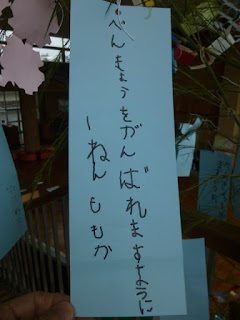 べんきょうをがんばれますように
一ねんももか